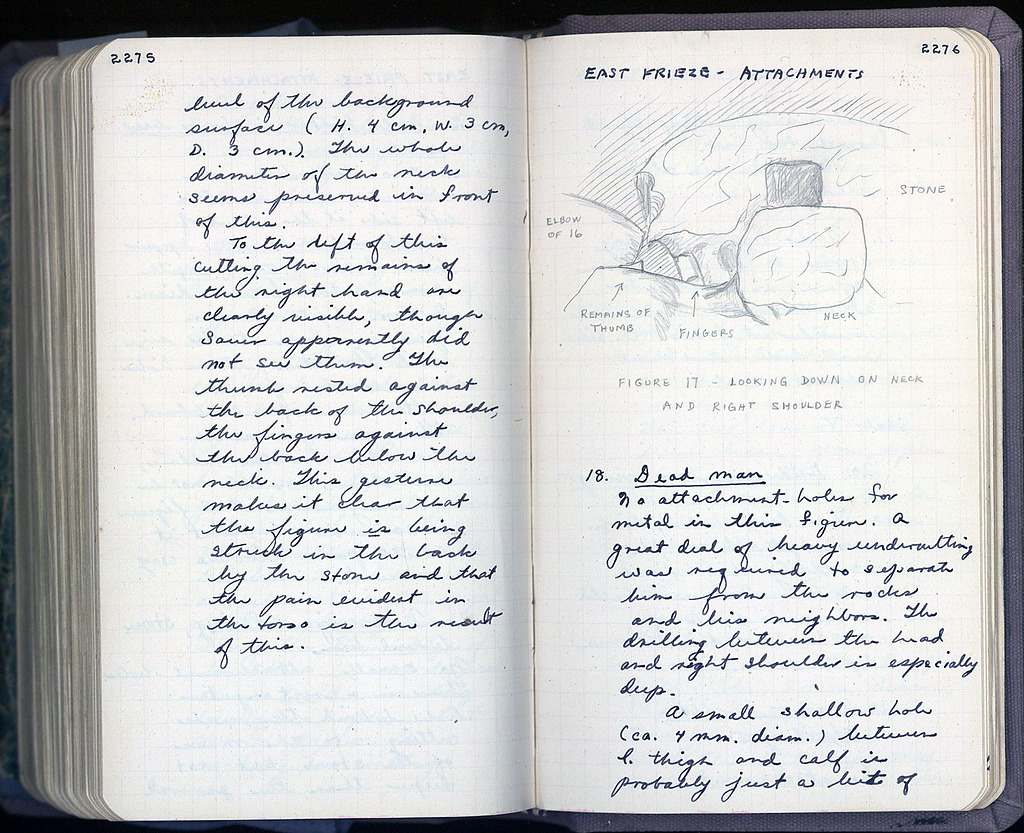 2275
level of the background
surface (H. 4 cm, W. 3 cm,
D. 3 cm.). The whole
diameter of the neck
seems preserved in front
of this.
To the left of this
cutting the remains of
the right hand are
clearly visible, though
Sauer apparently did
not see them. The
thumb rested against
the back of the shoulder,
the fingers against
the back below the
neck. This gesture
makes it clear that
the figure is being
struck in the back
by the stone and that
the pain evident in
the torso is the result
of this.
2276
EAST FRIEZE - ATTACHMENTS
STONE
ELBOW
OF 16
REMAINS OF
THUMB
FINGERS
NECK
FIGURE 17 - LOOKING DOWN ON NECK
AND RIGHT SHOULDER
18. Dead man
No attachment-holes for
metal in this figure. A
great deal of heavy undercutting
was required to separate
him from the rocks
and his neighbors. The
drilling between the head
and right shoulder is especially
deep.
A small shallow hole
(ca. 4 mm. diam.) between
l. thigh and calf is
probably just a bit of